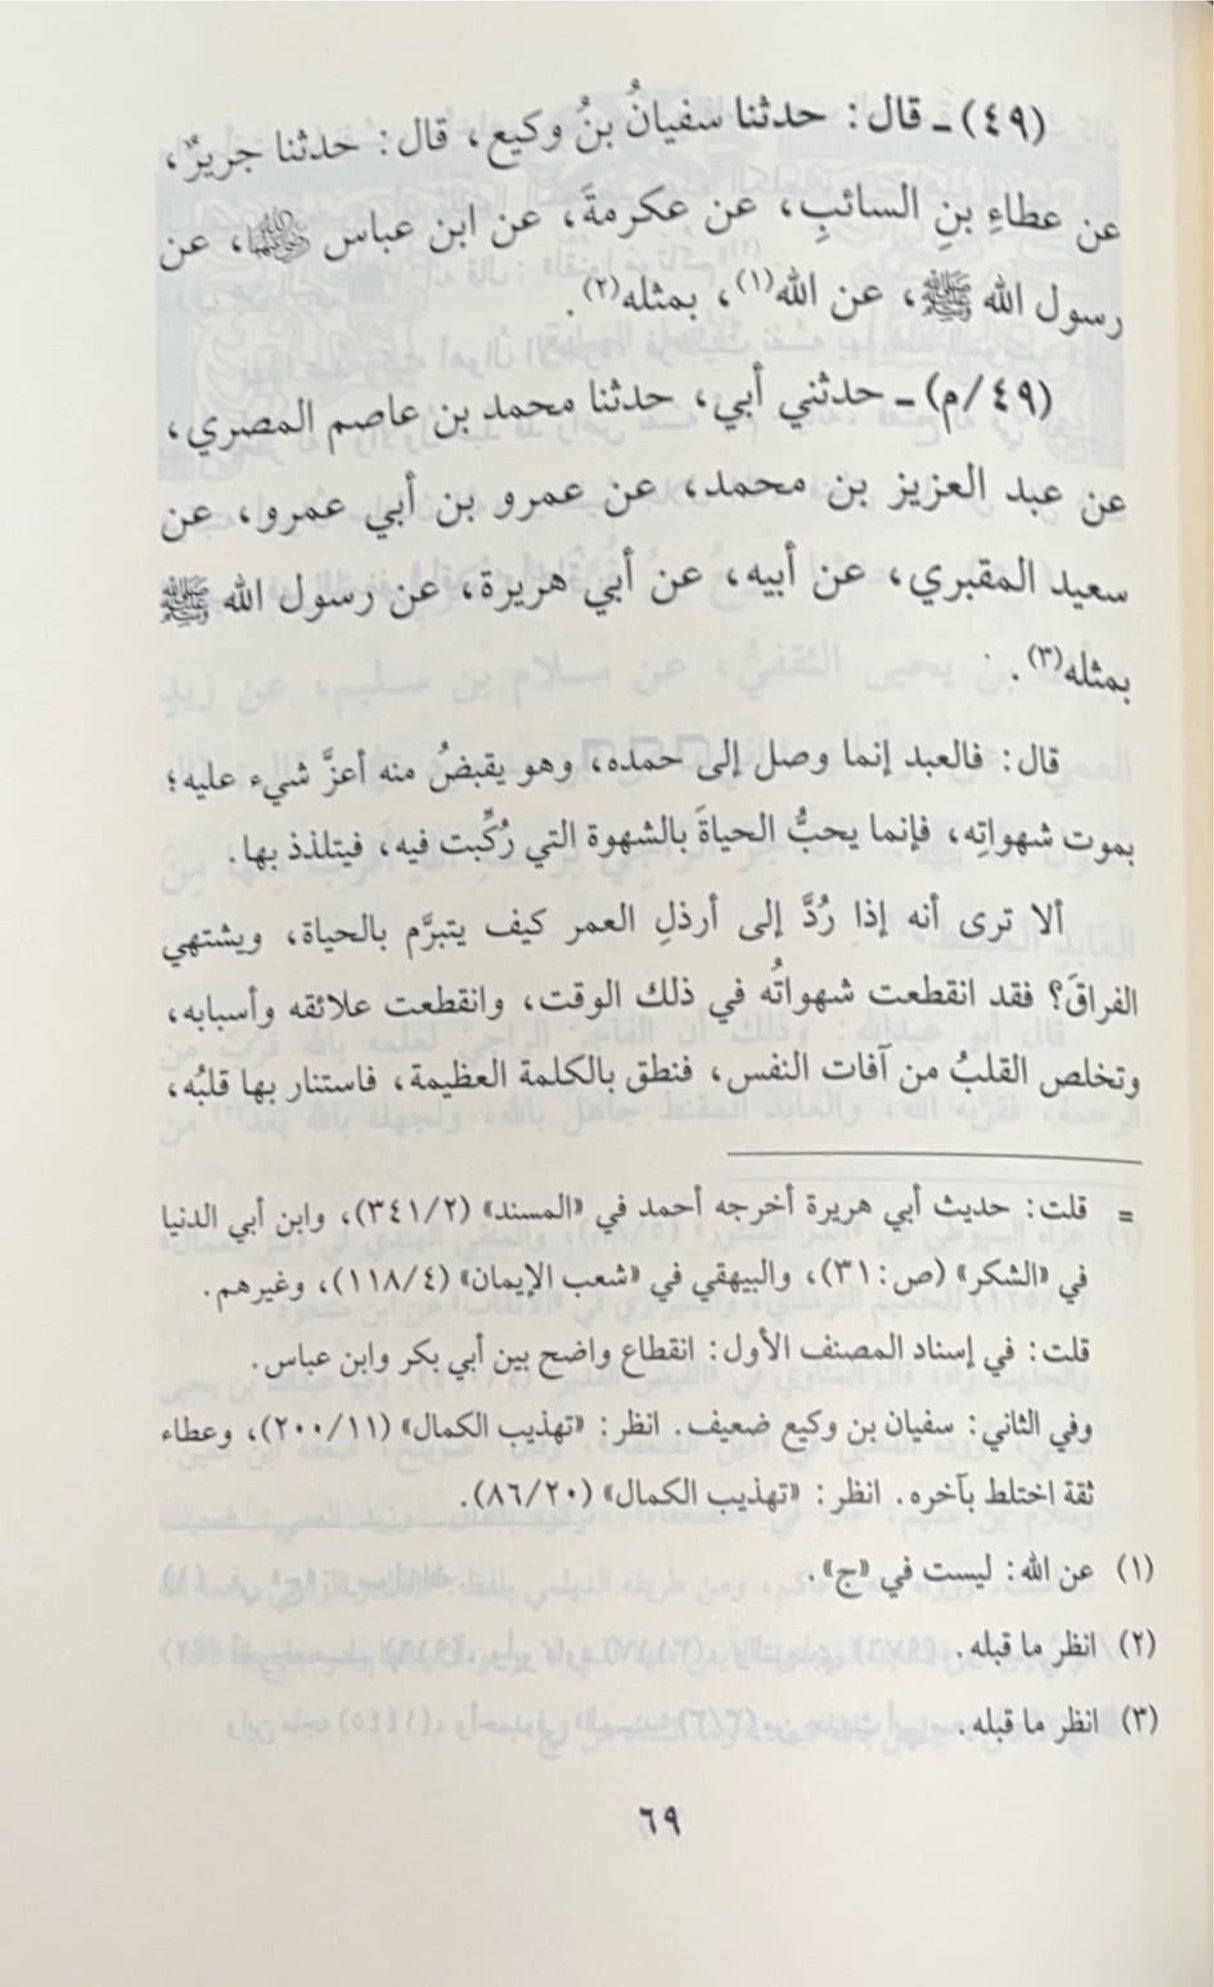 (٤٩) ـ قال: حدثنا سفيانُ بنُ وكيع، قال: حدثنا جريرٌ،
عن عطاءِ بنِ السائبِ، عن عكرمةَ، عن ابن عباس ﵄، عن
رسول الله ﷺ، عن الله(١)، بمثله(٢).
(٤٩/م) ـ حدثني أبي، حدثنا محمد بن عاصم المصري،
عن عبد العزيز بن محمد، عن عمرو بن أبي عمرو، عن
سعيد المقبري، عن أبيه، عن أبي هريرة، عن رسول الله ﷺ
بمثله(٣).
قال: فالعبد إنما وصل إلى حمده، وهو يقبضُ منه أعزَّ شيء عليه؛
بموت شهواتِه، فإنما يحبُّ الحياةَ بالشهوة التي رُكِّبت فيه، فيتلذذ بها.
ألا ترى أنه إذا رُدَّ إلى أرذلِ العمر كيف يتبرَّم بالحياة، ويشتهي
الفراقَ؟ فقد انقطعت شهواتُه في ذلك الوقت، وانقطعت علائقه وأسبابه،
وتخلص القلبُ من آفات النفس، فنطق بالكلمة العظيمة، فاستنار بها قلبُه،
= قلت: حديث أبي هريرة أخرجه أحمد في «المسند» (٣٤١/٢)، وابن أبي الدنيا
في «الشكر» (ص: ٣١)، والبيهقي في «شعب الإيمان» (١١٨/٤)، وغيرهم.
قلت: في إسناد المصنف الأول: انقطاع واضح بين أبي بكر وابن عباس.
وفي الثاني: سفيان بن وكيع ضعيف. انظر: «تهذيب الكمال» (٢٠٠/١١)، وعطاء
ثقة اختلط بآخره. انظر: «تهذيب الكمال» (٨٦/٢٠).
(١) عن الله: ليست في «ج».
(٢) انظر ما قبله.
(٣) انظر ما قبله.
٦٩